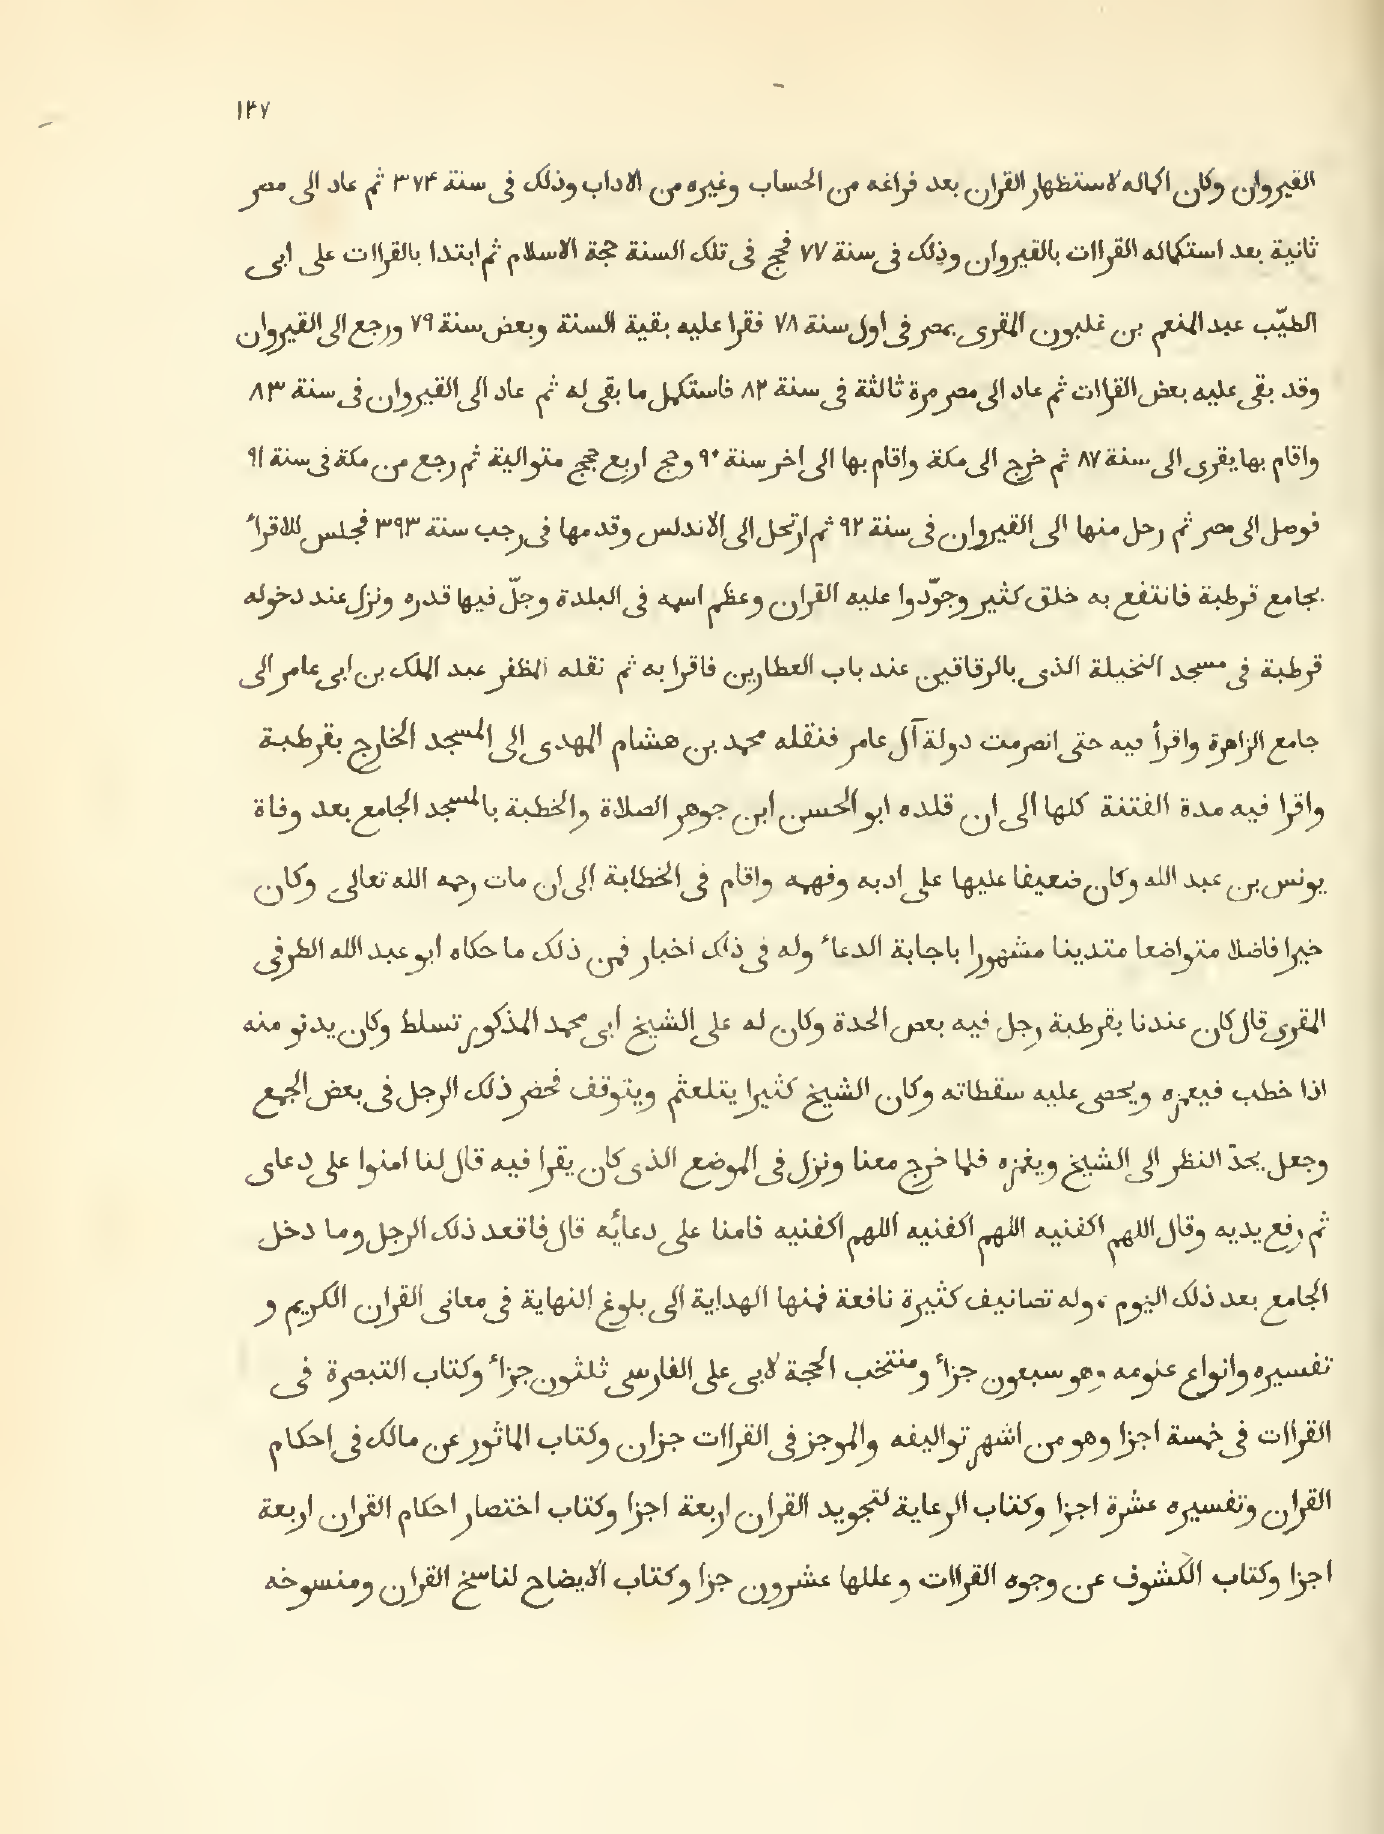 ١٤٧
القيروان وكان اكماله لاستظهار القران بعد فراغه من الحساب وغيره من الاداب وذلك فى سنة ٣٧٤ ثم عاد الى مصر
ثانية بعد استكماله القراات بالقيروان وذلك فى سنة ٧٧ فحج فى تلك السنة حجة الاسلام ثم ابتدا بالقراات على ابى
الطيّب عبد المنعم بن غلبون المقرى بمصر فى اول سنة ٧٨ فقرا عليه بقية السنة وبعض سنة ٧٩ ورجع الى القيروان
وقد بقى عليه بعض القراات ثم عاد الى مصر مرة ثالثة فى سنة ٨٢ فاستكمل ما بقى له ثم عاد الى القيروان فى سنة ٨٣
واقام بها يقرى الى سنة ٨٧ ثم خرج الى مكة واقام بها الى اخر سنة ٩٠ وحج اربع حجج متوالية ثم رجع من مكة فى سنة ٩١
فوصل الى مصر ثم رحل منها الى القيروان فى سنة ٩٢ ثم ارتحل الى الاندلس وقدمها فى رجب سنة ٣٩٣ فجلس للاقراء
بجامع قرطبة فانتفع به خلق كثير وجوّدوا عليه القران وعظم اسمه فى البلدة وجلّ فيها قدره ونزل عند دخوله
قرطبة فى مسجد النخيلة الذى بالرقاقين عند باب العطارين فاقرا به ثم نقله المظفر عبد الملك بن ابى عامر الى
جامع الزاهرة واقرأ فيه حتى انصرمت دولة آل عامر فنقله محمد بن هشام المهدى الى المسجد الخارج بقرطبة
واقرا فيه مدة الفتنة كلها الى ان قلده ابو الحسن ابن جوهر الصلاة والخطبة بالمسجد الجامع بعد وفاة
يونس بن عبد الله وكان ضعيفا عليها على ادبه وفهمه واقام فى الخطابة الى ان مات رحمه الله تعالى وكان
خيرا فاضلا متواضعا متدينا مشهورا باجابة الدعاء وله فى ذلك اخبار فمن ذلك ما حكاه ابو عبد الله الطرفى
المقرى قال كان عندنا بقرطبة رجل فيه بعض الحدة وكان له على الشيخ ابى محمد المذكور تسلط وكان يدنو منه
اذا خطب فيغمزه ويحصى عليه سقطاته وكان الشيخ كثيرا يتلعثم ويتوقف فحضر ذلك الرجل فى بعض الجمع
وجعل يحدّ النظر الى الشيخ ويغمزه فلما خرج معنا ونزل فى الموضع الذى كان يقرا فيه قال لنا امنوا على دعاى
ثم رفع يديه وقال اللهم اكفنيه اللهم اكفنيه اللهم اكفنيه فامنا على دعائه قال فاقعد ذلك الرجل وما دخل
الجامع بعد ذلك اليوم ، وله تصانيف كثيرة نافعة فمنها الهداية الى بلوغ النهاية فى معانى القران الكريم و
تفسيره وانواع علومه وهو سبعون جزأ ومنتخب الحجة لابى على الفارسى ثلثون جزأ وكتاب التبصرة فى
القراات فى خمسة اجزا وهو من اشهر تواليفه والموجز فى القراات جزان وكتاب الماثور عن مالك فى احكام
القران وتفسيره عشرة اجزا وكتاب الرعاية لتجويد القران اربعة اجزا وكتاب اختصار احكام القران اربعة
اجزا وكتاب الكشوف عن وجوه القراات وعللها عشرون جزا وكتاب الايضاح لناسخ القران ومنسوخه